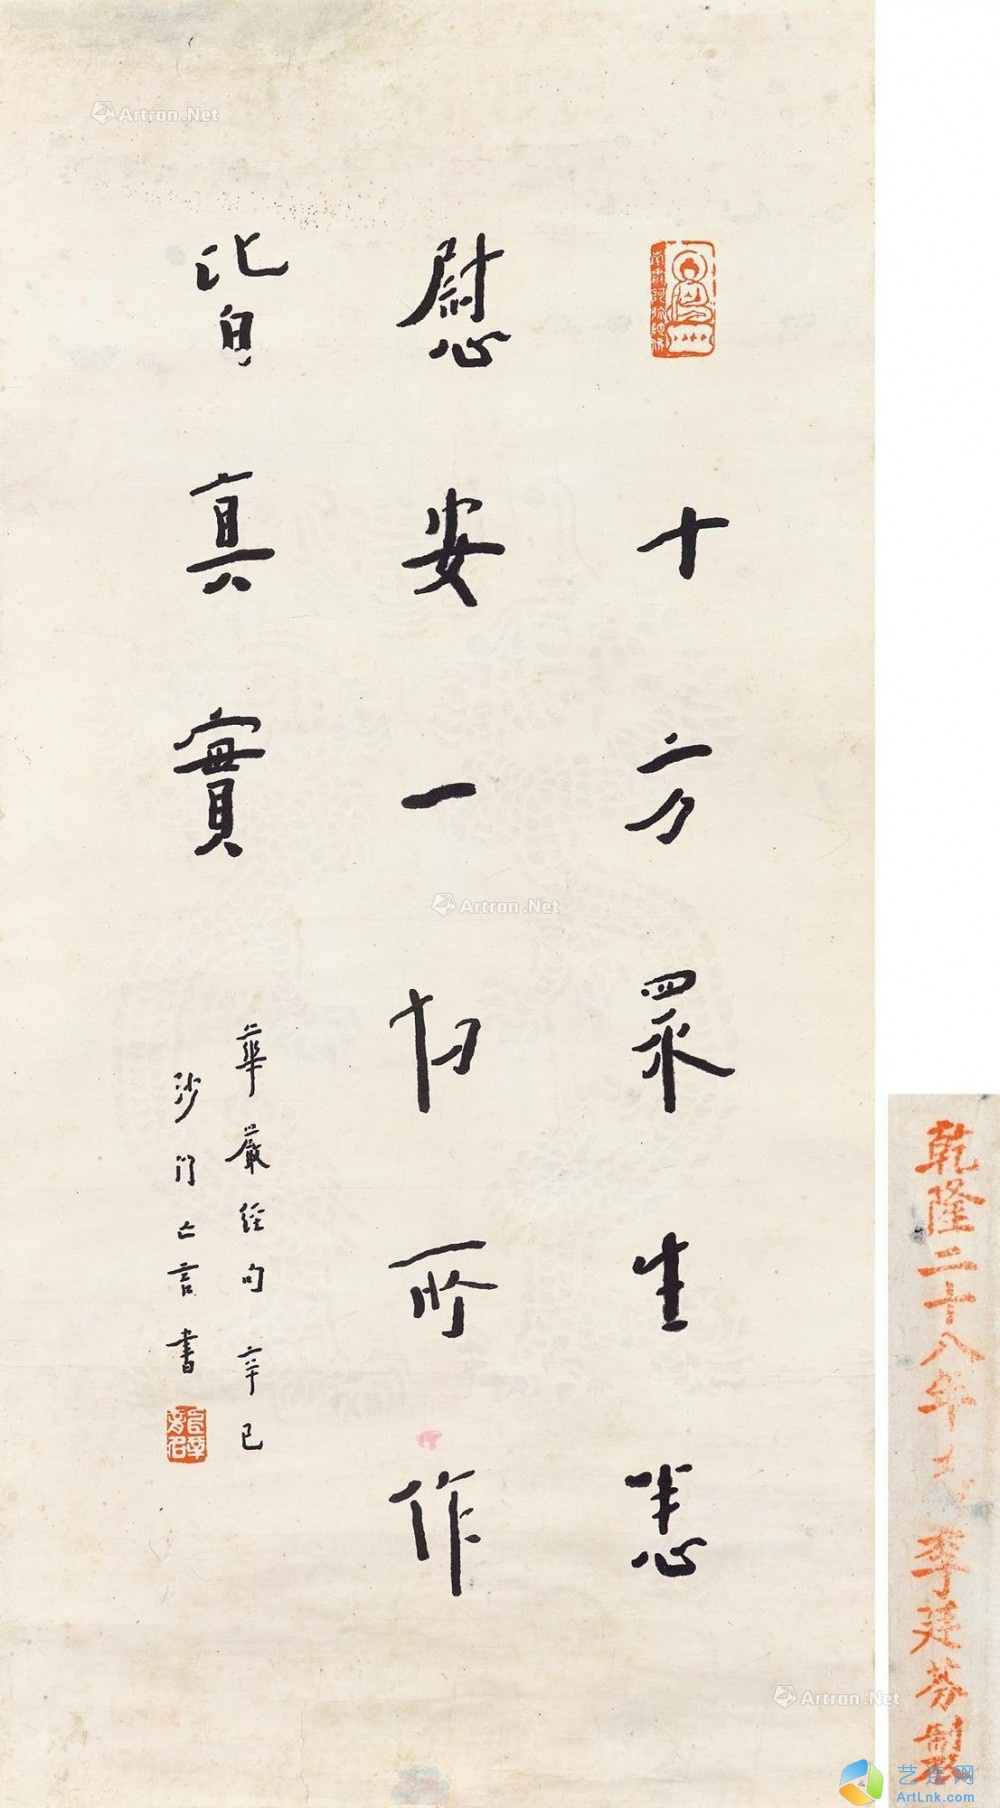 南無阿彌陀佛
十方眾生悉
慰安一切所作
皆真實
華嚴經句 辛巳
沙門亡言書
乾隆二十八年
李廷芬製
Artron.Net
Artron.Net
Artron.Net
艺连网
ArtLnk.com